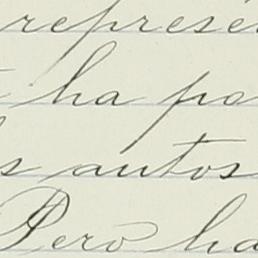 represe
ha po
s autos
Pero ha